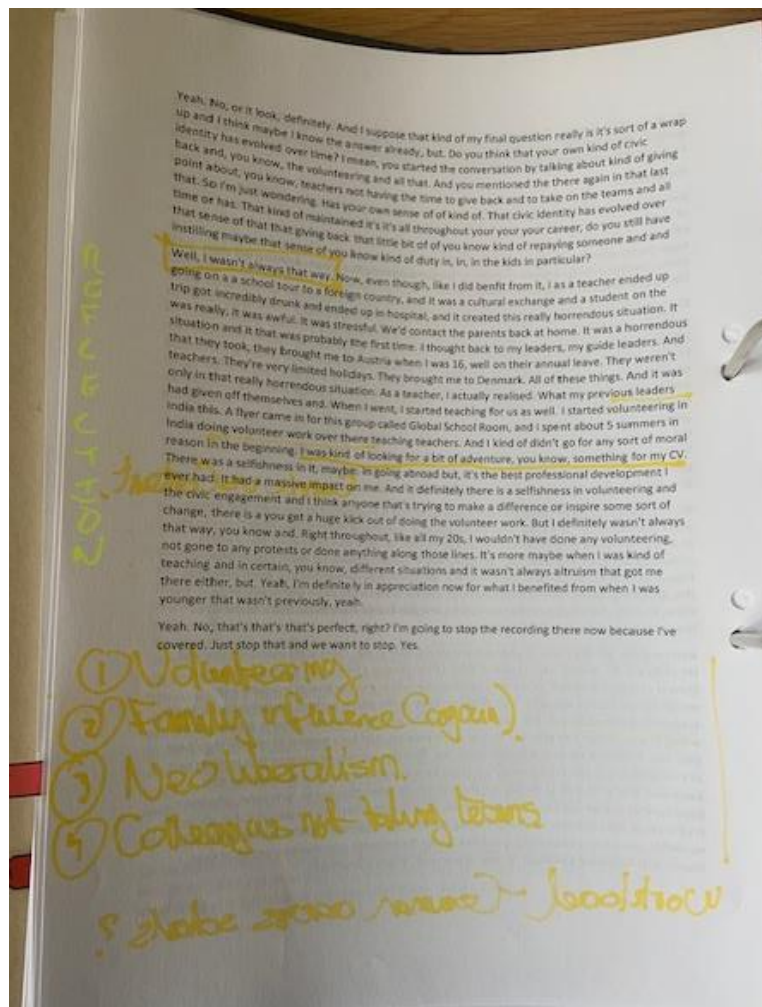 Yeah. No, or it look, definitely. And I suppose that kind of my final question really is it's sort of a wrap
up and I think maybe I know the answer already, but. Do you think that your own kind of civic
identity has evolved over time? I mean, you started the conversation by talking about kind of giving
back and, you know, the volunteering and all that. And you mentioned the there again in that last
point about, you know, teachers not having the time to give back and to take on the teams and all
that. So I'm just wondering. Has your own sense of of kind of. That civic identity has evolved over
time or has. That kind of maintained it's it's all throughout your your your career, do you still have
that sense of that that giving back that little bit of of you know kind of repaying someone and and
instilling maybe that sense of you know kind of duty in, in, in the kids in particular?
Well, I wasn't always that way. Now, even though, like I did benfit from it, I as a teacher ended up
going on a a school tour to a foreign country, and it was a cultural exchange and a student on the
trip got incredibly drunk and ended up in hospital, and it created this really horrendous situation. It
was really, it was awful. It was stressful. We'd contact the parents back at home. It was a horrendous
situation and it that was probably the first time. I thought back to my leaders, my guide leaders. And
that they took, they brought me to Austria when I was 16, well on their annual leave. They weren't
teachers. They're very limited holidays. They brought me to Denmark. All of these things. And it was
only in that really horrendous situation. As a teacher, I actually realised. What my previous leaders
had given off themselves and. When I went, I started teaching for us as well. I started volunteering in
India this. A flyer came in for this group called Global School Room, and I spent about 5 summers in
India doing volunteer work over there teaching teachers. And I kind of didn't go for any sort of moral
reason in the beginning. I was kind of looking for a bit of adventure, you know, something for my CV.
There was a selfishness in it, maybe. In going abroad but, it's the best professional development I
ever had. It had a massive impact on me. And it definitely there is a selfishness in volunteering and
the civic engagement and I think anyone that's trying to make a difference or inspire some sort of
change, there is a you get a huge kick out of doing the volunteer work. But I definitely wasn't always
that way, you know and. Right throughout, like all my 20s, I wouldn't have done any volunteering,
not gone to any protests or done anything along those lines. It's more maybe when I was kind of
teaching and in certain, you know, different situations and it wasn't always altruism that got me
there either, but. Yeah, I'm definitely in appreciation now for what I benefited from when I was
younger that wasn't previously, yeah.
Yeah. No, that's that's that's perfect, right? I'm going to stop the recording there now because I've
covered. Just stop that and we want to stop. Yes.
REFLECTION
① Volunteering
② Family influence (again).
③ Neo liberalism.
④ Colleagues not taking teams